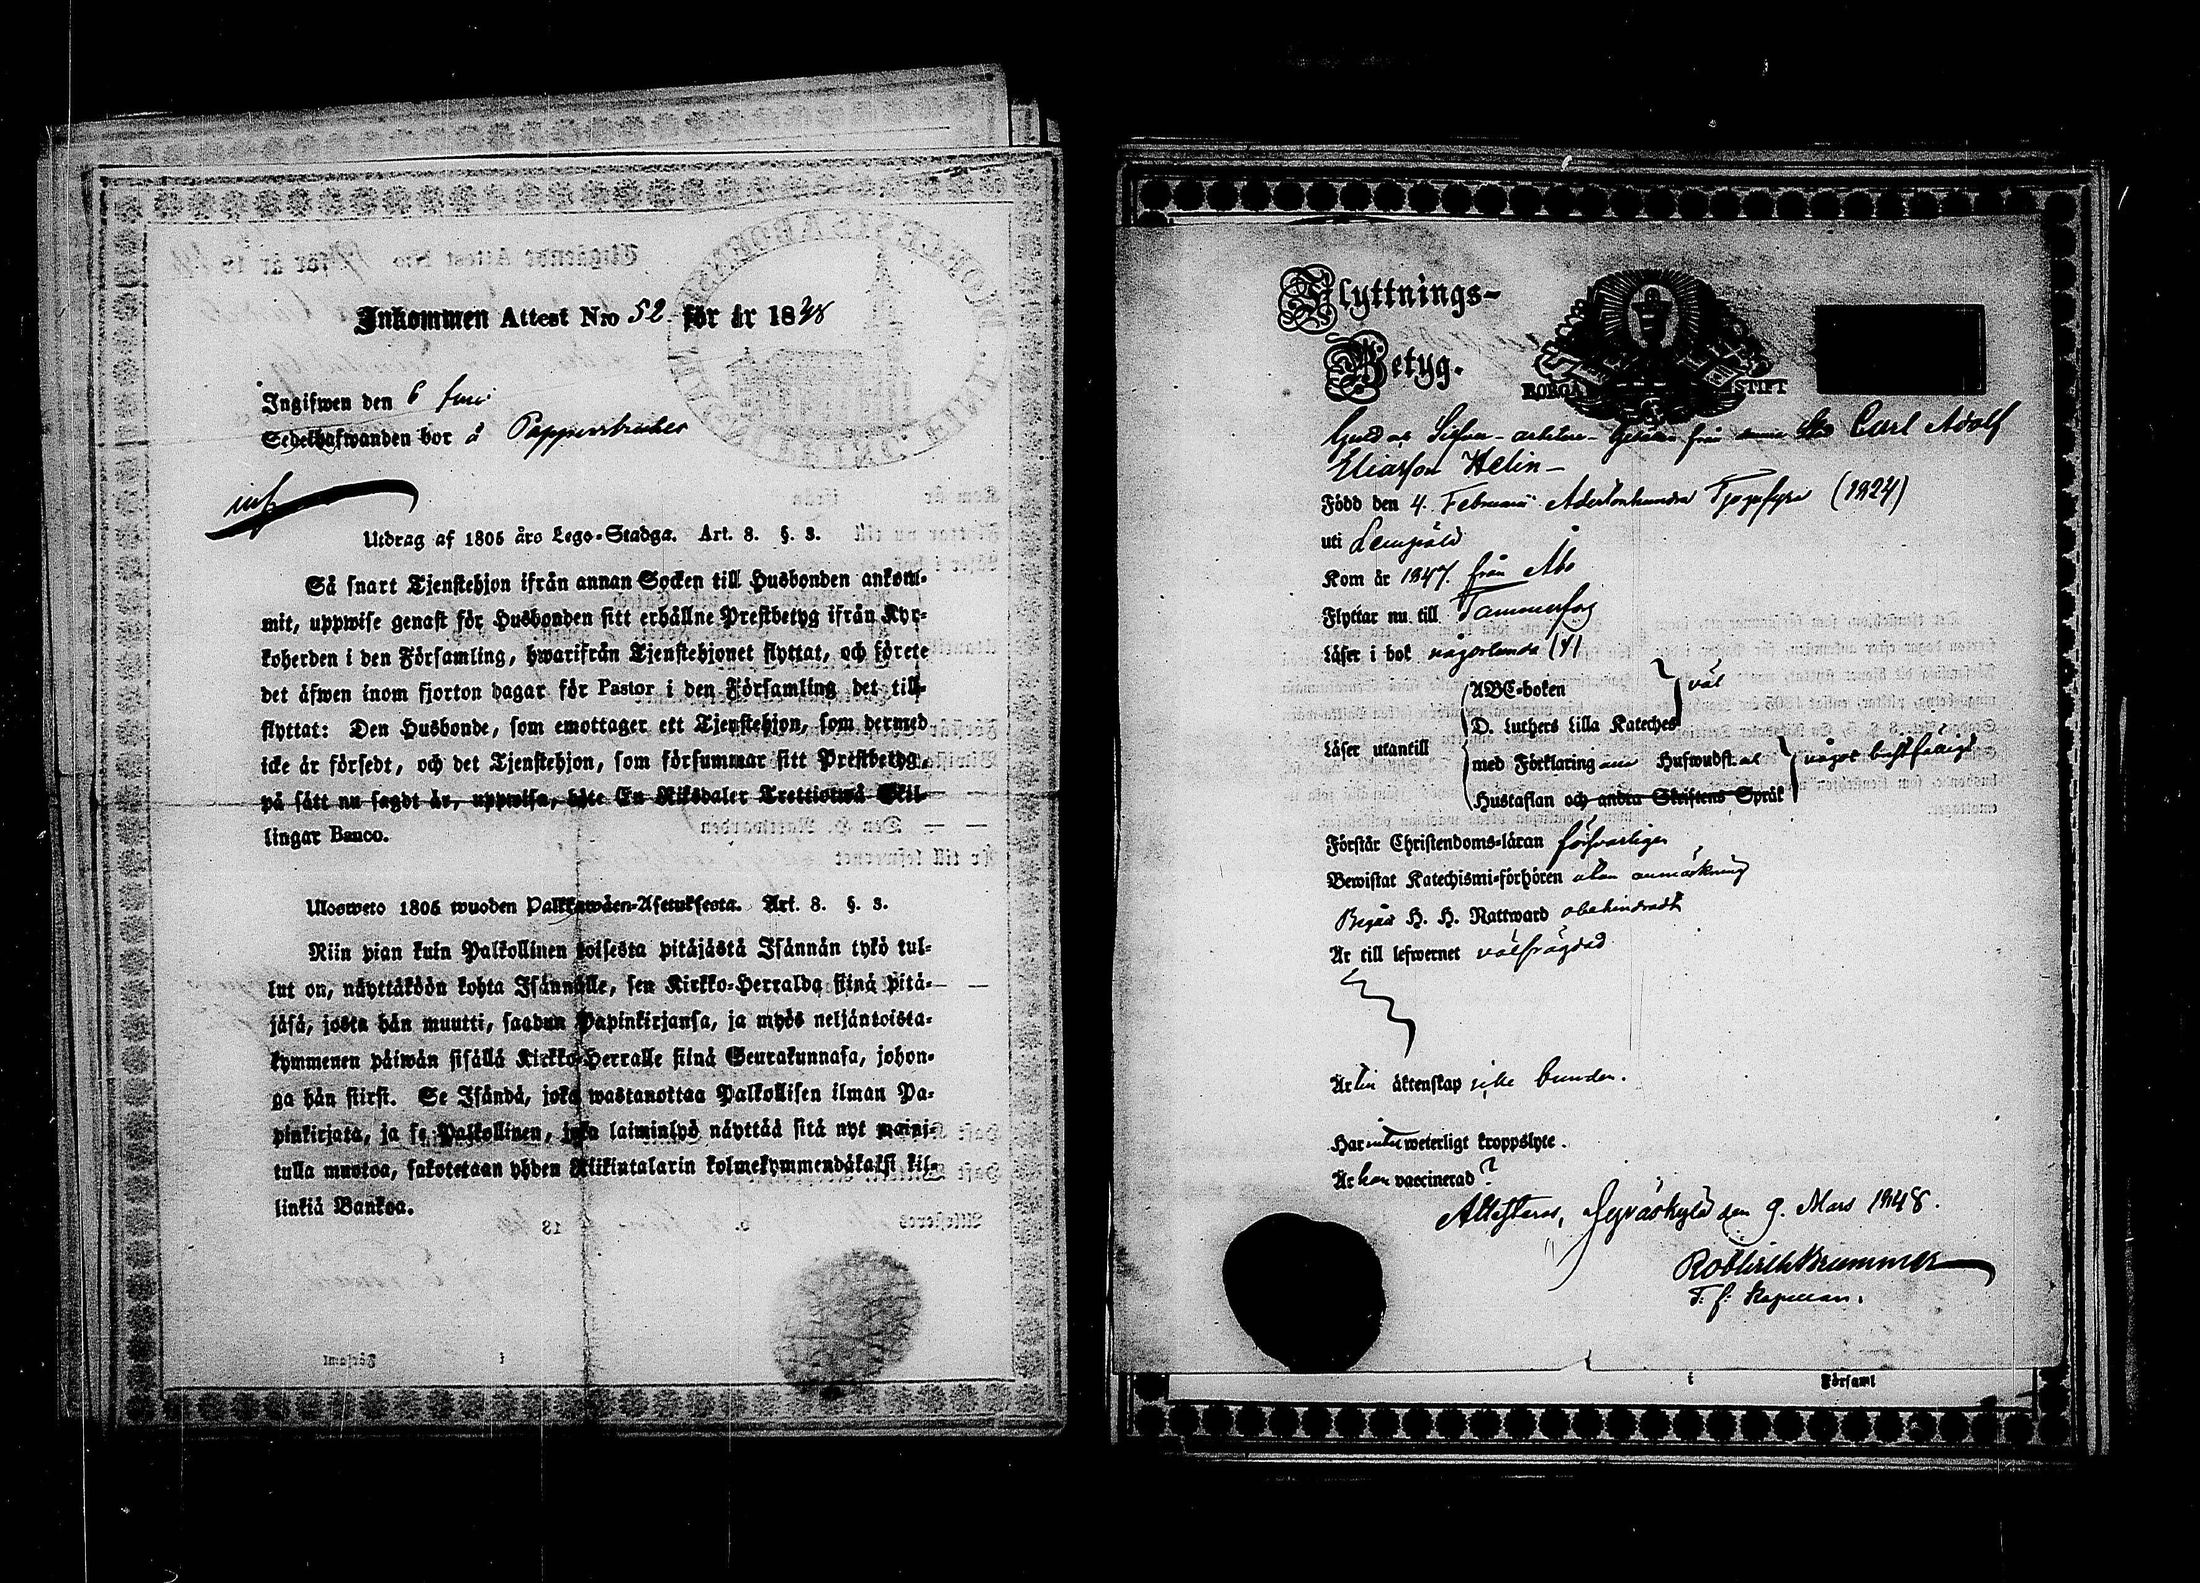 Inkommen Attest Nro 52 för år 1848
Ingifwen den 6 Juni
Sedelhafwanden bor å Pappersbruket
Utdrag af 1805 års Lego-Stadga. Art. 8. §. 3.
Så snart Tjenstehjon ifrån annan Socken till Husbonden ankom-
mit, uppwise genast för Husbonden sitt erhållne Prestbetyg ifrån Kyr-
koherden i den Församling, hwarifrån Tjenstehjonet flyttat, och förete
det äfwen inom fjorton dagar för Pastor i den Församling det till-
flyttat: Den Husbonde, som emottager ett Tjenstehjon, som dermed
icke är försedt, och det Tjenstehjon, som försummar sitt Prestbetyg,
på sätt nu sagdt är, uppwisa, böte En Riksdaler Trettiotwå Skil-
lingar Banco.
Ulosweto 1805 wuoden Palkkawäen-Asetuksesta. Art. 8. §. 3.
Niin pian kuin Palkollinen toisesta pitäjästä Isännän tykö tul-
lut on, näyttäköön kohta Isännälle, sen Kirkko-Herralda siinä pitä-
jäsä, josta hän muutti, saadun Papinkirjansa, ja myös neljäntoista-
kymmenen päiwän sisällä Kirkko-Herralle siinä Seurakunnasa, johon-
ga hän siirsi. Se Isändä, joka wastanottaa Palkollisen ilman Pa-
pinkirjata, ja se Palkollinen, joka laiminlyö näyttää sitä nyt maini-
tulla muotoa, sakotetaan yhden Riikintalarin kolmekymmendäkaksi kil-
linkiä Bankoa.
Flyttnings-
Betyg.
BORGÅ STIFT
Carl Adolf
Eliasson Helin
Född den 4. Februarii Adertonhundra Tjugufyra (1824)
uti Lempälä
Kom år 1847. från Åbo
Flyttar nu till Tammerfors
Läser i bok någorlunda
ABC-boken
D. Luthers Lilla Kateches
väl
Läser utantill
med Förklaring Huswudst.
Hustaflan och andra Skriftens Språk
något bristfälligt
Förstår Christendoms-läran försvarligen
Bewistat Katechismi-förhören utan anmärkning
Begår H. H. Nattward obehindradt
Är till lefwernet välfrägdad
Är till äktenskap icke bunden.
Har intet weterligt kroppslyte.
Är han vaccinerad?
Attesteras, Jyväskylä den 9. Mars 1848.
Rob. Brummer
T. f. Kapellan.
i Församl